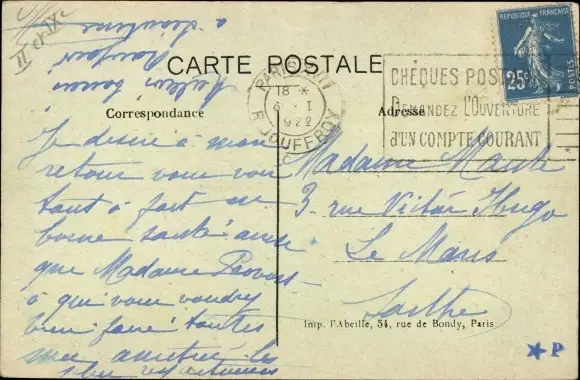 II et IXe
à Lécutrive
Bonjour
Meilleur souvenir
CARTE POSTALE
REPUBLIQUE FRANÇAISE
25c
POSTES
PARIS XVII
18 *
6 · I
1922
R. JOUFFROY
CHÈQUES POSTAUX
DEMANDEZ L'OUVERTURE
d'UN COMPTE COURANT
Correspondance
Adresse
Je désire à mon
retour vous voir
tout à fait en
bonne santé ainsi
que Madame Provost
à qui vous voudrez
bien faire toutes
mes amitiés les
plus respectueuses
Madame Maute
3. rue Victor Hugo
Le Mans
Sarthe
Imp. l'Abeille, 54, rue de Bondy, Paris
★ P